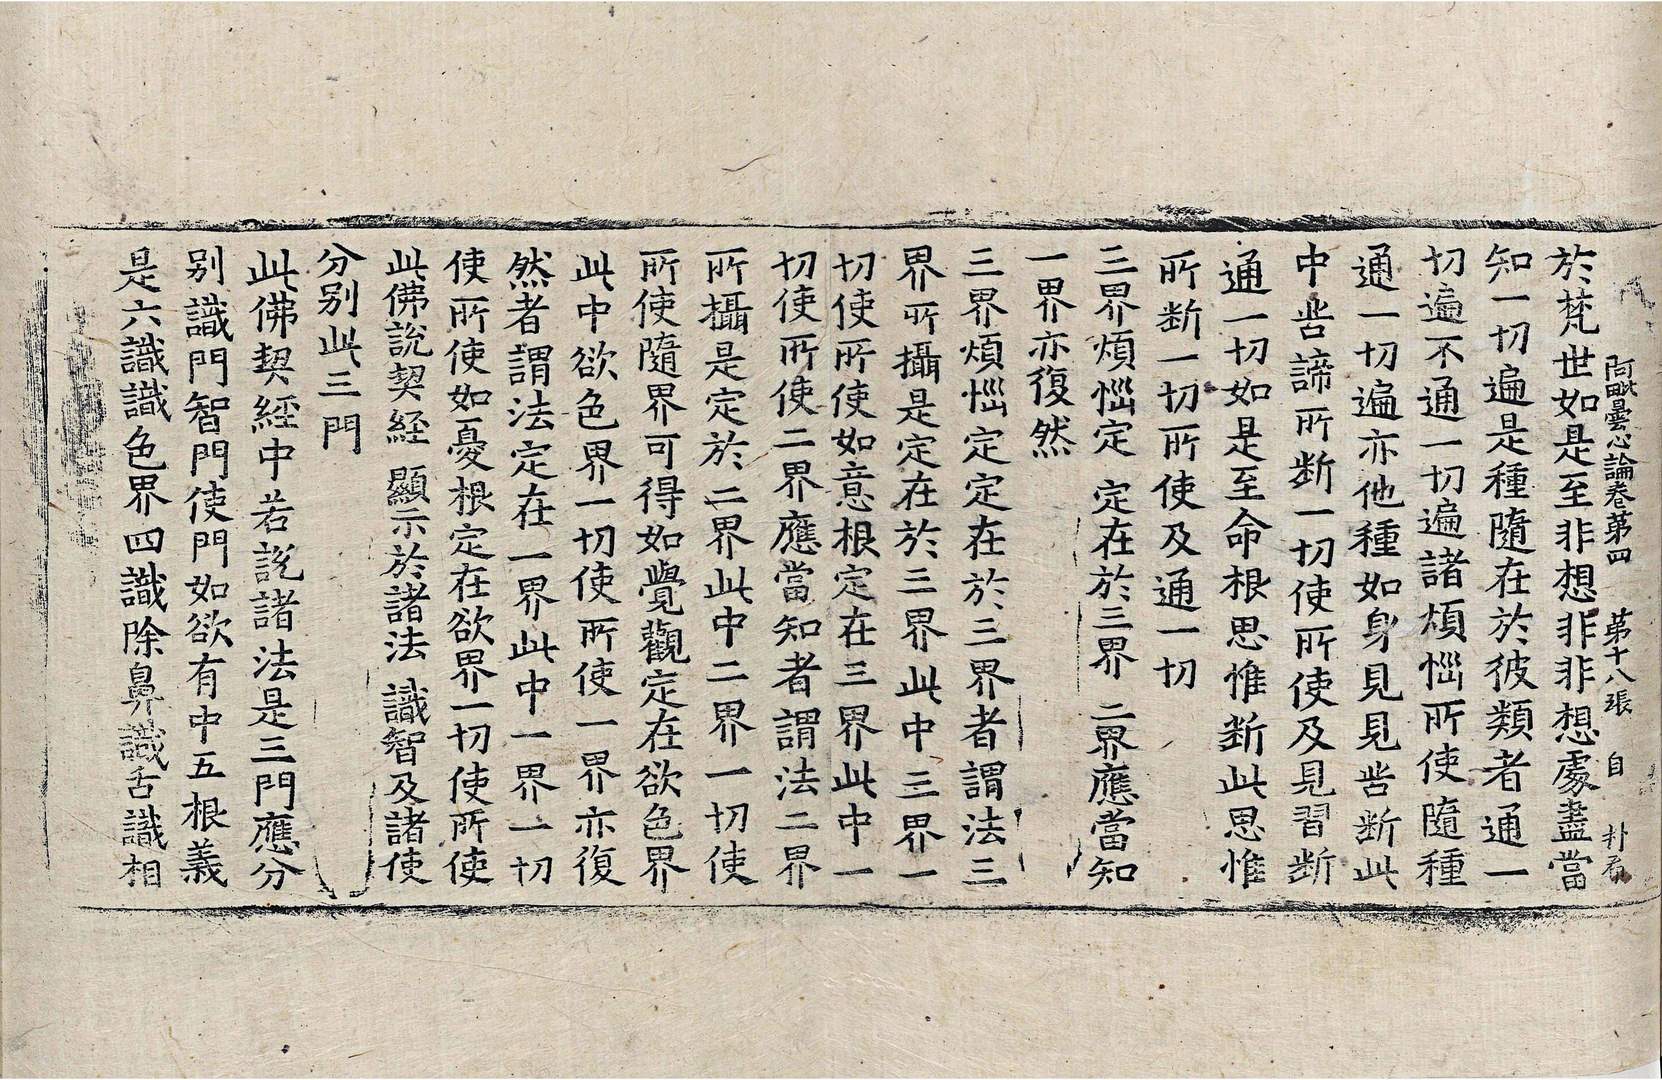 阿毗曇心論卷第四 第十八張 自
於梵世如是至非想非非想處盡當
知一切遍是種隨在於彼類者通一
切遍不通一切遍諸煩惱所使隨種
通一切遍亦他種如身見見苦斷此
中苦諦所斷一切使所使及見習斷
通一切如是至命根思惟斷此思惟
所斷一切所使及通一切
三界煩惱定 定在於三界 二界應當知
一界亦復然
三界煩惱定定在於三界者謂法三
界所攝是定在於三界此中三界一
切使所使如意根定在三界此中一
切使所使二界應當知者謂法二界
所攝是定於二界此中二界一切使
所使隨界可得如覺觀定在欲色界
此中欲色界一切使所使一界亦復
然者謂法定在一界此中一界一切
使所使如憂根定在欲界一切使所使
此佛說契經 顯示於諸法 識智及諸使
分別此三門
此佛契經中若説諸法是三門應分
別識門智門使門如欲有中五根義
是六識識色界四識除鼻識舌識相